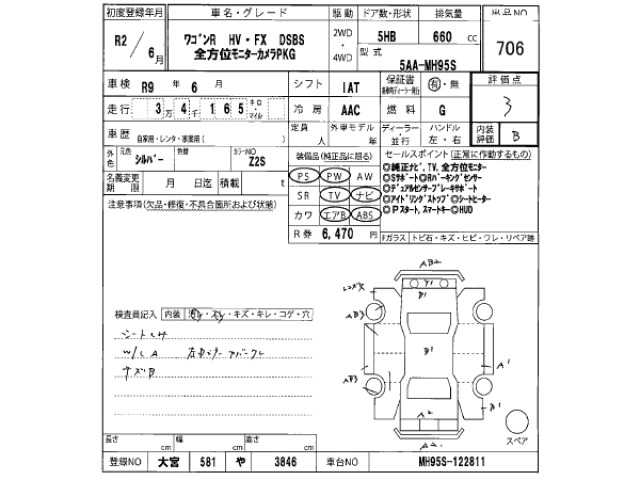 初度登録年月 車名・グレード 駆動 ドア数・形状 排気量 出品NO
R2 / 6月 ワゴンR HV・FX DSBS 全方位モニターカメラPKG 2WD・4WD 5HB 660 cc 706
型式 5AA-MH95S
車検 R9 年 6 月 シフト IAT 保証書 有・無 評価点
走行 3万4千165 キロ・マイル 冷房 AAC 燃料 G 3
車歴 自家用・レンタ・事業用( ) 定員 人 外車モデル 年 ディーラー・並行 ハンドル 左・右 内装評価 B
外色 元色 シルバー 色替 カラーNO Z2S 装備品(純正品に限る) セールスポイント(正常に作動するもの)
名義変更期限 月 日迄 積載 t PS PW AW
◎純正ナビ,TV,全方位モニター
◎Sサポート◎Rパーキングセンサー
◎デュアルセンサーブレーキサポート
◎アイドリングストップ◎シートヒーター
◎Pスタート,スマートキー◎HUD
注意事項(欠品・修復・不具合箇所および状態) SR TV ナビ
カワ エアB ABS
R券 6,470 円 Fガラス トビ石・キズ・ヒビ・ワレ・リペア跡
AB2
Y1
B1
AB3
B1
A1
AB3
B1
A2
A2
スペア
検査員記入 内装 汚レ・スレ・キズ・キレ・コゲ・穴
W/L A
キズ有
長さ cm 幅 cm 高さ cm
登録NO 大宮 581 や 3846 車台NO MH95S-122811